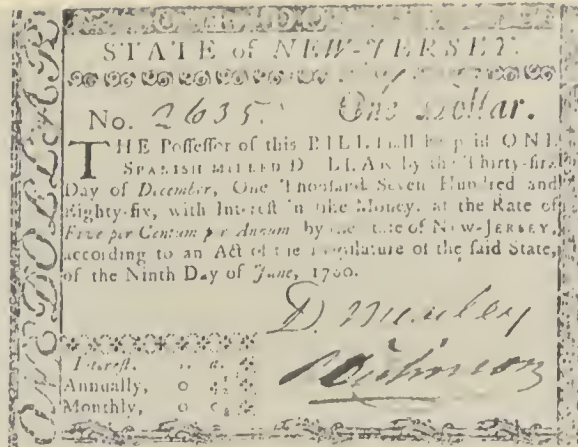 STATE of NEW-JERSEY.
No. 2635. One Dollar.
THE Possessor of this BILL shall be paid ONE
SPANISH MILLED DOLLAR by the Thirty-first
Day of December, One Thousand Seven Hundred and
Eighty-six, with Interest in like Money, at the Rate of
Five per Centum per Annum by the State of NEW-JERSEY,
according to an Act of the Legislature of the said State,
of the Ninth Day of June, 1780.
Interest.
Annually, 0
Monthly, 0
ONE DOLLAR